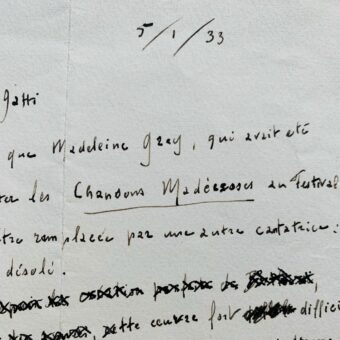 5/1/33
Gatti
que Madeleine Grey, qui avait été
ter les Chansons Madécasses au Festival
tre remplacée par une autre cantatrice :
désolé.
cette œuvre fort difficile